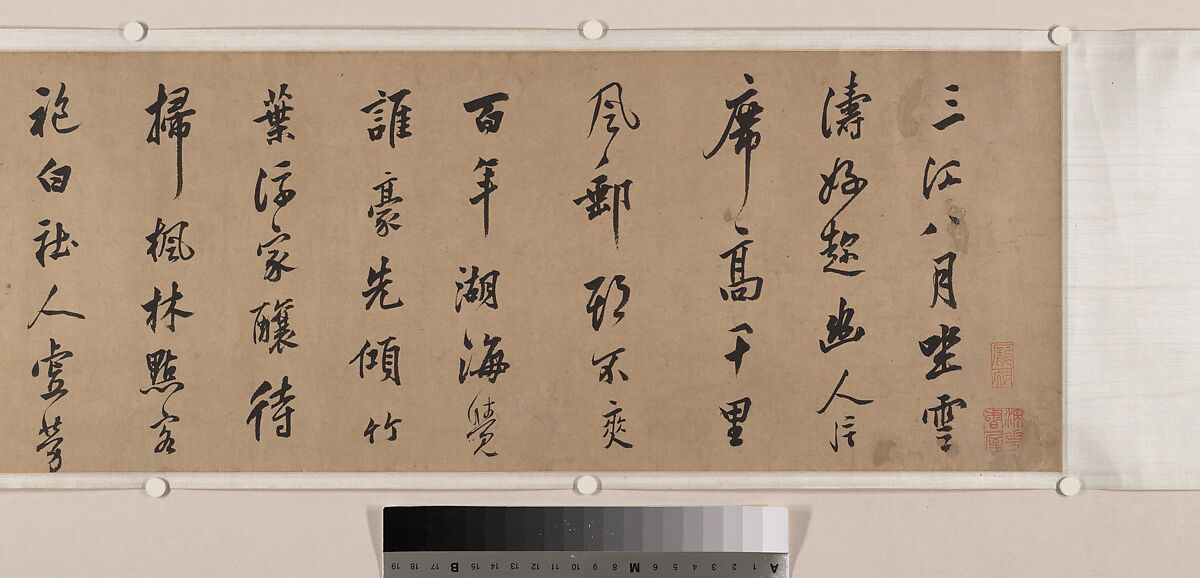 三江八月坐雪
濤好趂幽人
席高千里
風郵郭不爽
百年湖海覺
誰豪先傾竹
葉浮家釀待
掃楓林點客
袍白社人虛
A 1 2 3 4 5 6 M 8 9 10 11 12 13 14 15 B 17 18 19